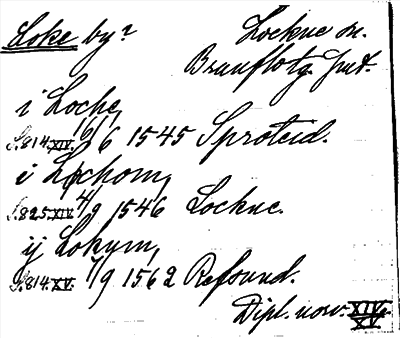 Loke by? Lockne sn.
Brunflo tg. Jmt.
i Loche,
S.814.XIV. 16/6 1545 Sproteid.
i Lochom,
S.825.XIV. 4/9 1546 Lockne.
ij Lokum,
S.814.XV. 7/9 1562 Refsund.
Dipl. norv. XIV.
XV.